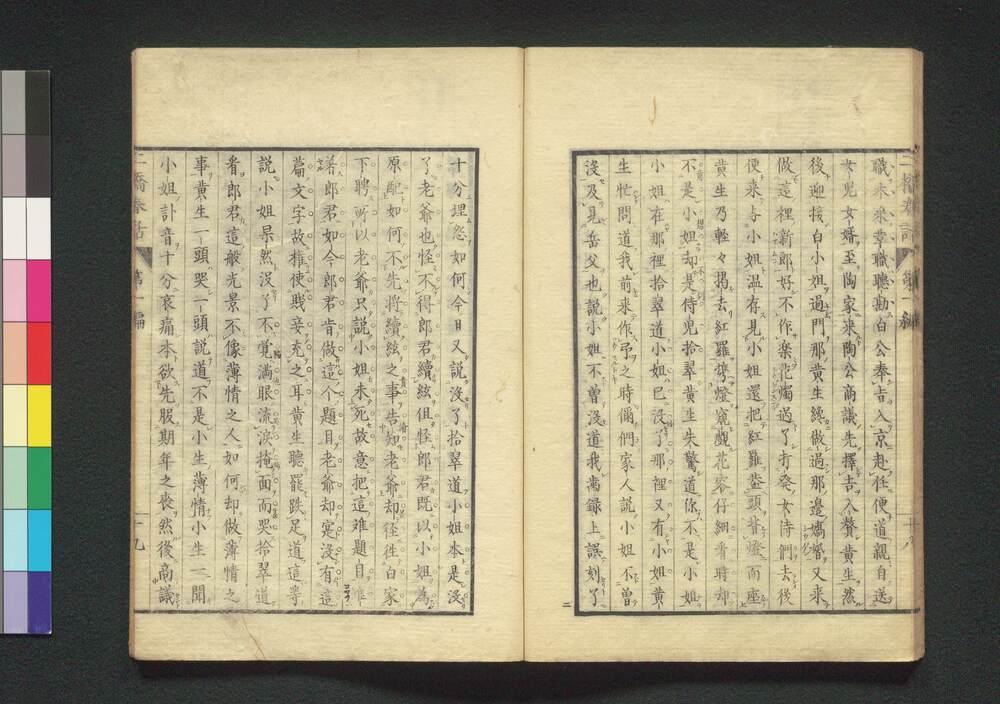 職未來辜職聽勘白公奉吉入京赴任便道親自送
女兒女婿至陶家来陶公商議先擇吉入贅黃生然
後迎接白小姐過門那黃生纔做過那邊嬌婿又来
做這裡新郎好不作樂花燭過了打發女侍們去後
便来与小姐温存見小姐還把紅羅盖頭背燈而座
黃生乃輕々揭去紅羅携燈窺覷花容仔細看時却
不是小姐却是侍兒拾翠黃生失驚道你不是小姐
小姐在那裡拾翠道小姐已没了那裡又有小姐黃
生忙問道我前来作弔之時儞們家人説小姐不曽
没及見岳父也説小姐不曽没道我嵩録上誤刻了
二
十分埋怨如何今日又説没了拾翠道小姐本是没
了老爺也怪不得郎君續絃但怪郎君既以小姐為
原配如何不先將續絃之事告知老爺却徃徃白家
下聘所以老爺只説小姐未死故意把這难題目難
着郎君如今郎君肯做這个題目老爺却寔没有這
篇文字故權使賎妾充之耳黃生聽罷跌足道這等
説小姐杲然没了不覺滿眼流涙掩面而哭拾翠道
看郎君這般光景不像薄情之人如何却做薄情之
事黃生一頭哭一頭説道不是小生薄情小生一聞
小姐訃音十分哀痛本欲先服期年之喪然後商議
二橋春話 第一編 十九